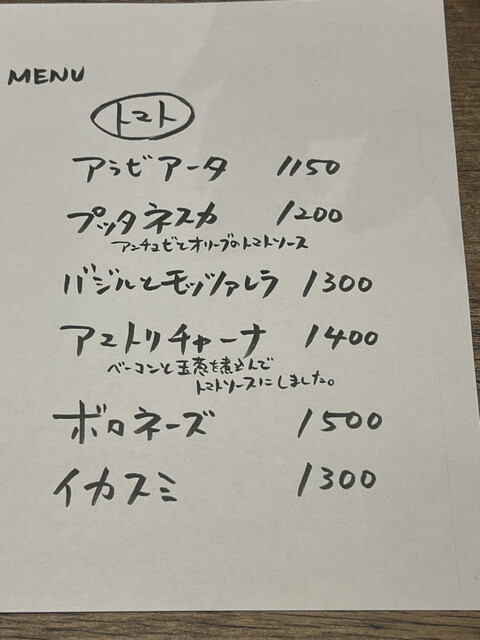 MENU
トマト
アラビアータ 1150
プッタネスカ 1200
アンチョビとオリーブのトマトソース
バジルとモッツァレラ 1300
アマトリチャーナ 1400
ベーコンと玉葱を煮込んで
トマトソースにしました。
ボロネーズ 1500
イカスミ 1300